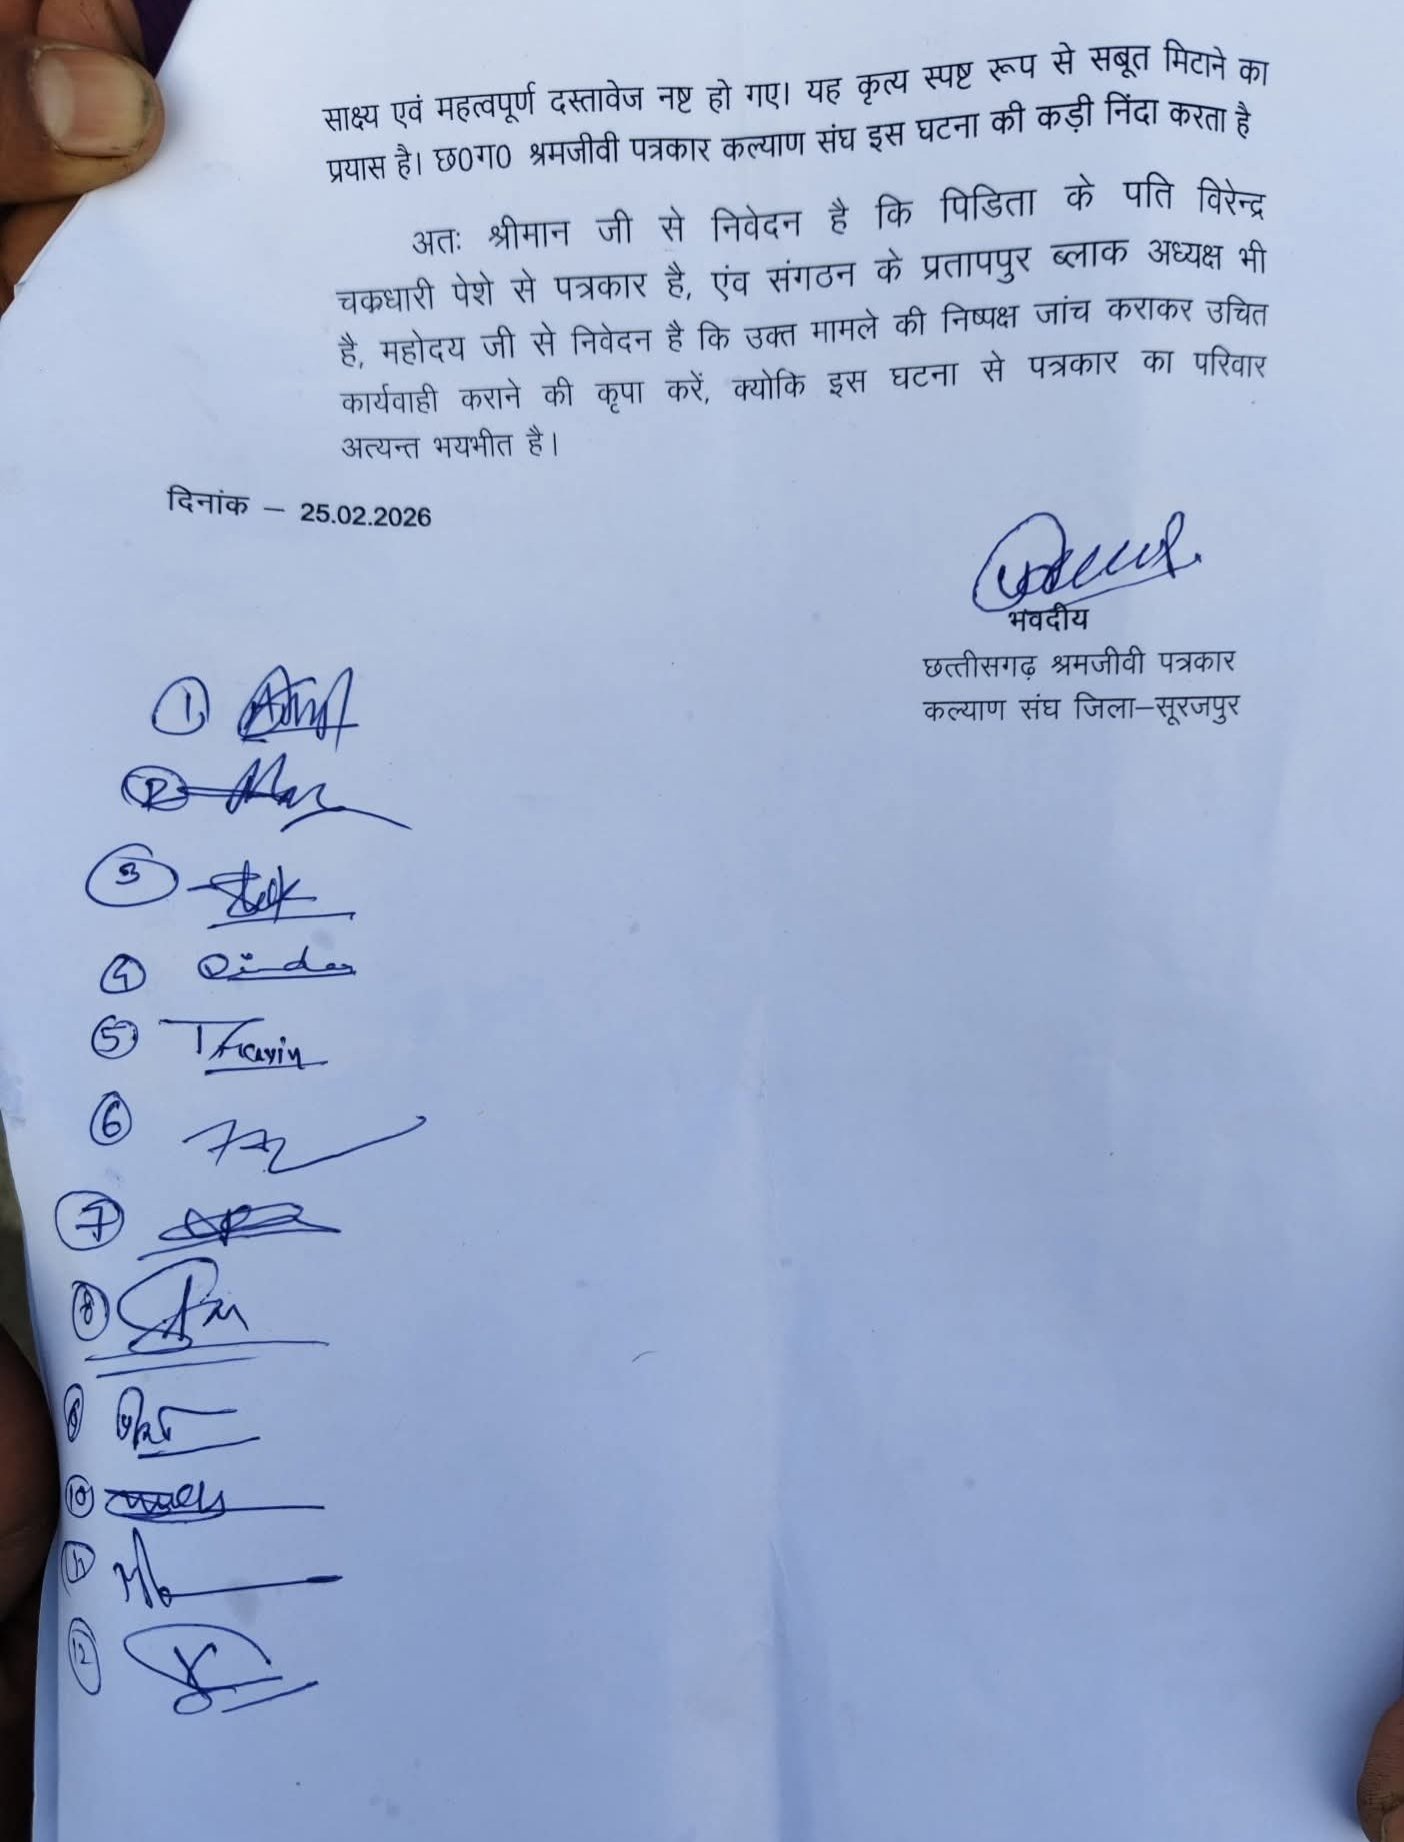 साक्ष्य एवं महत्वपूर्ण दस्तावेज नष्ट हो गए। यह कृत्य स्पष्ट रूप से सबूत मिटाने का
प्रयास है। छ0ग0 श्रमजीवी पत्रकार कल्याण संघ इस घटना की कड़ी निंदा करता है
अतः श्रीमान जी से निवेदन है कि पिडिता के पति विरेन्द्र
चकधारी पेशे से पत्रकार है, एंव संगठन के प्रतापपुर ब्लाक अध्यक्ष भी
है, महोदय जी से निवेदन है कि उक्त मामले की निष्पक्ष जांच कराकर उचित
कार्यवाही कराने की कृपा करें, क्योकि इस घटना से पत्रकार का परिवार
अत्यन्त भयभीत है।
दिनांक – 25.02.2026
भवदीय
छत्तीसगढ़ श्रमजीवी पत्रकार
कल्याण संघ जिला–सूरजपुर
1
2
3
4
5
6
7
8
10
11
12